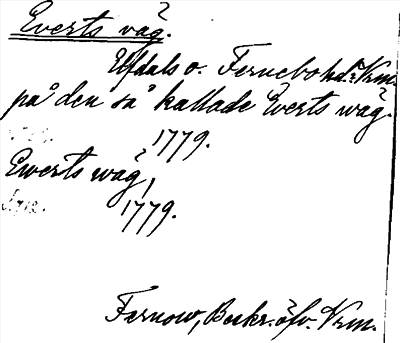 Everts våg.
Elfdals o. Fernebo hd:r Vrm.
på den så kallade Everts wåg.
1779.
Ewerts wåg,
1779.
Fernow, Beskr. öfv. Vrm.